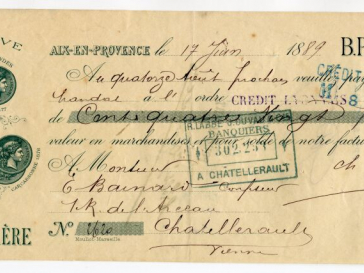 VE
AIX-EN-PROVENCE le 17 Juin 1889 BP
Au quatorze Août prochain veuillez pay
CREDIT
mandat à l' ordre CREDIT LYONNAIS
de Cent quatre vingt
BANQUIERS
30223
A CHATELLERAULT
valeur en marchandises et pour solde de notre factu
A Monsieur
E Bainard
1 R. de l'Arceau
ÈRE No 2620 Chatellerault
Vienne